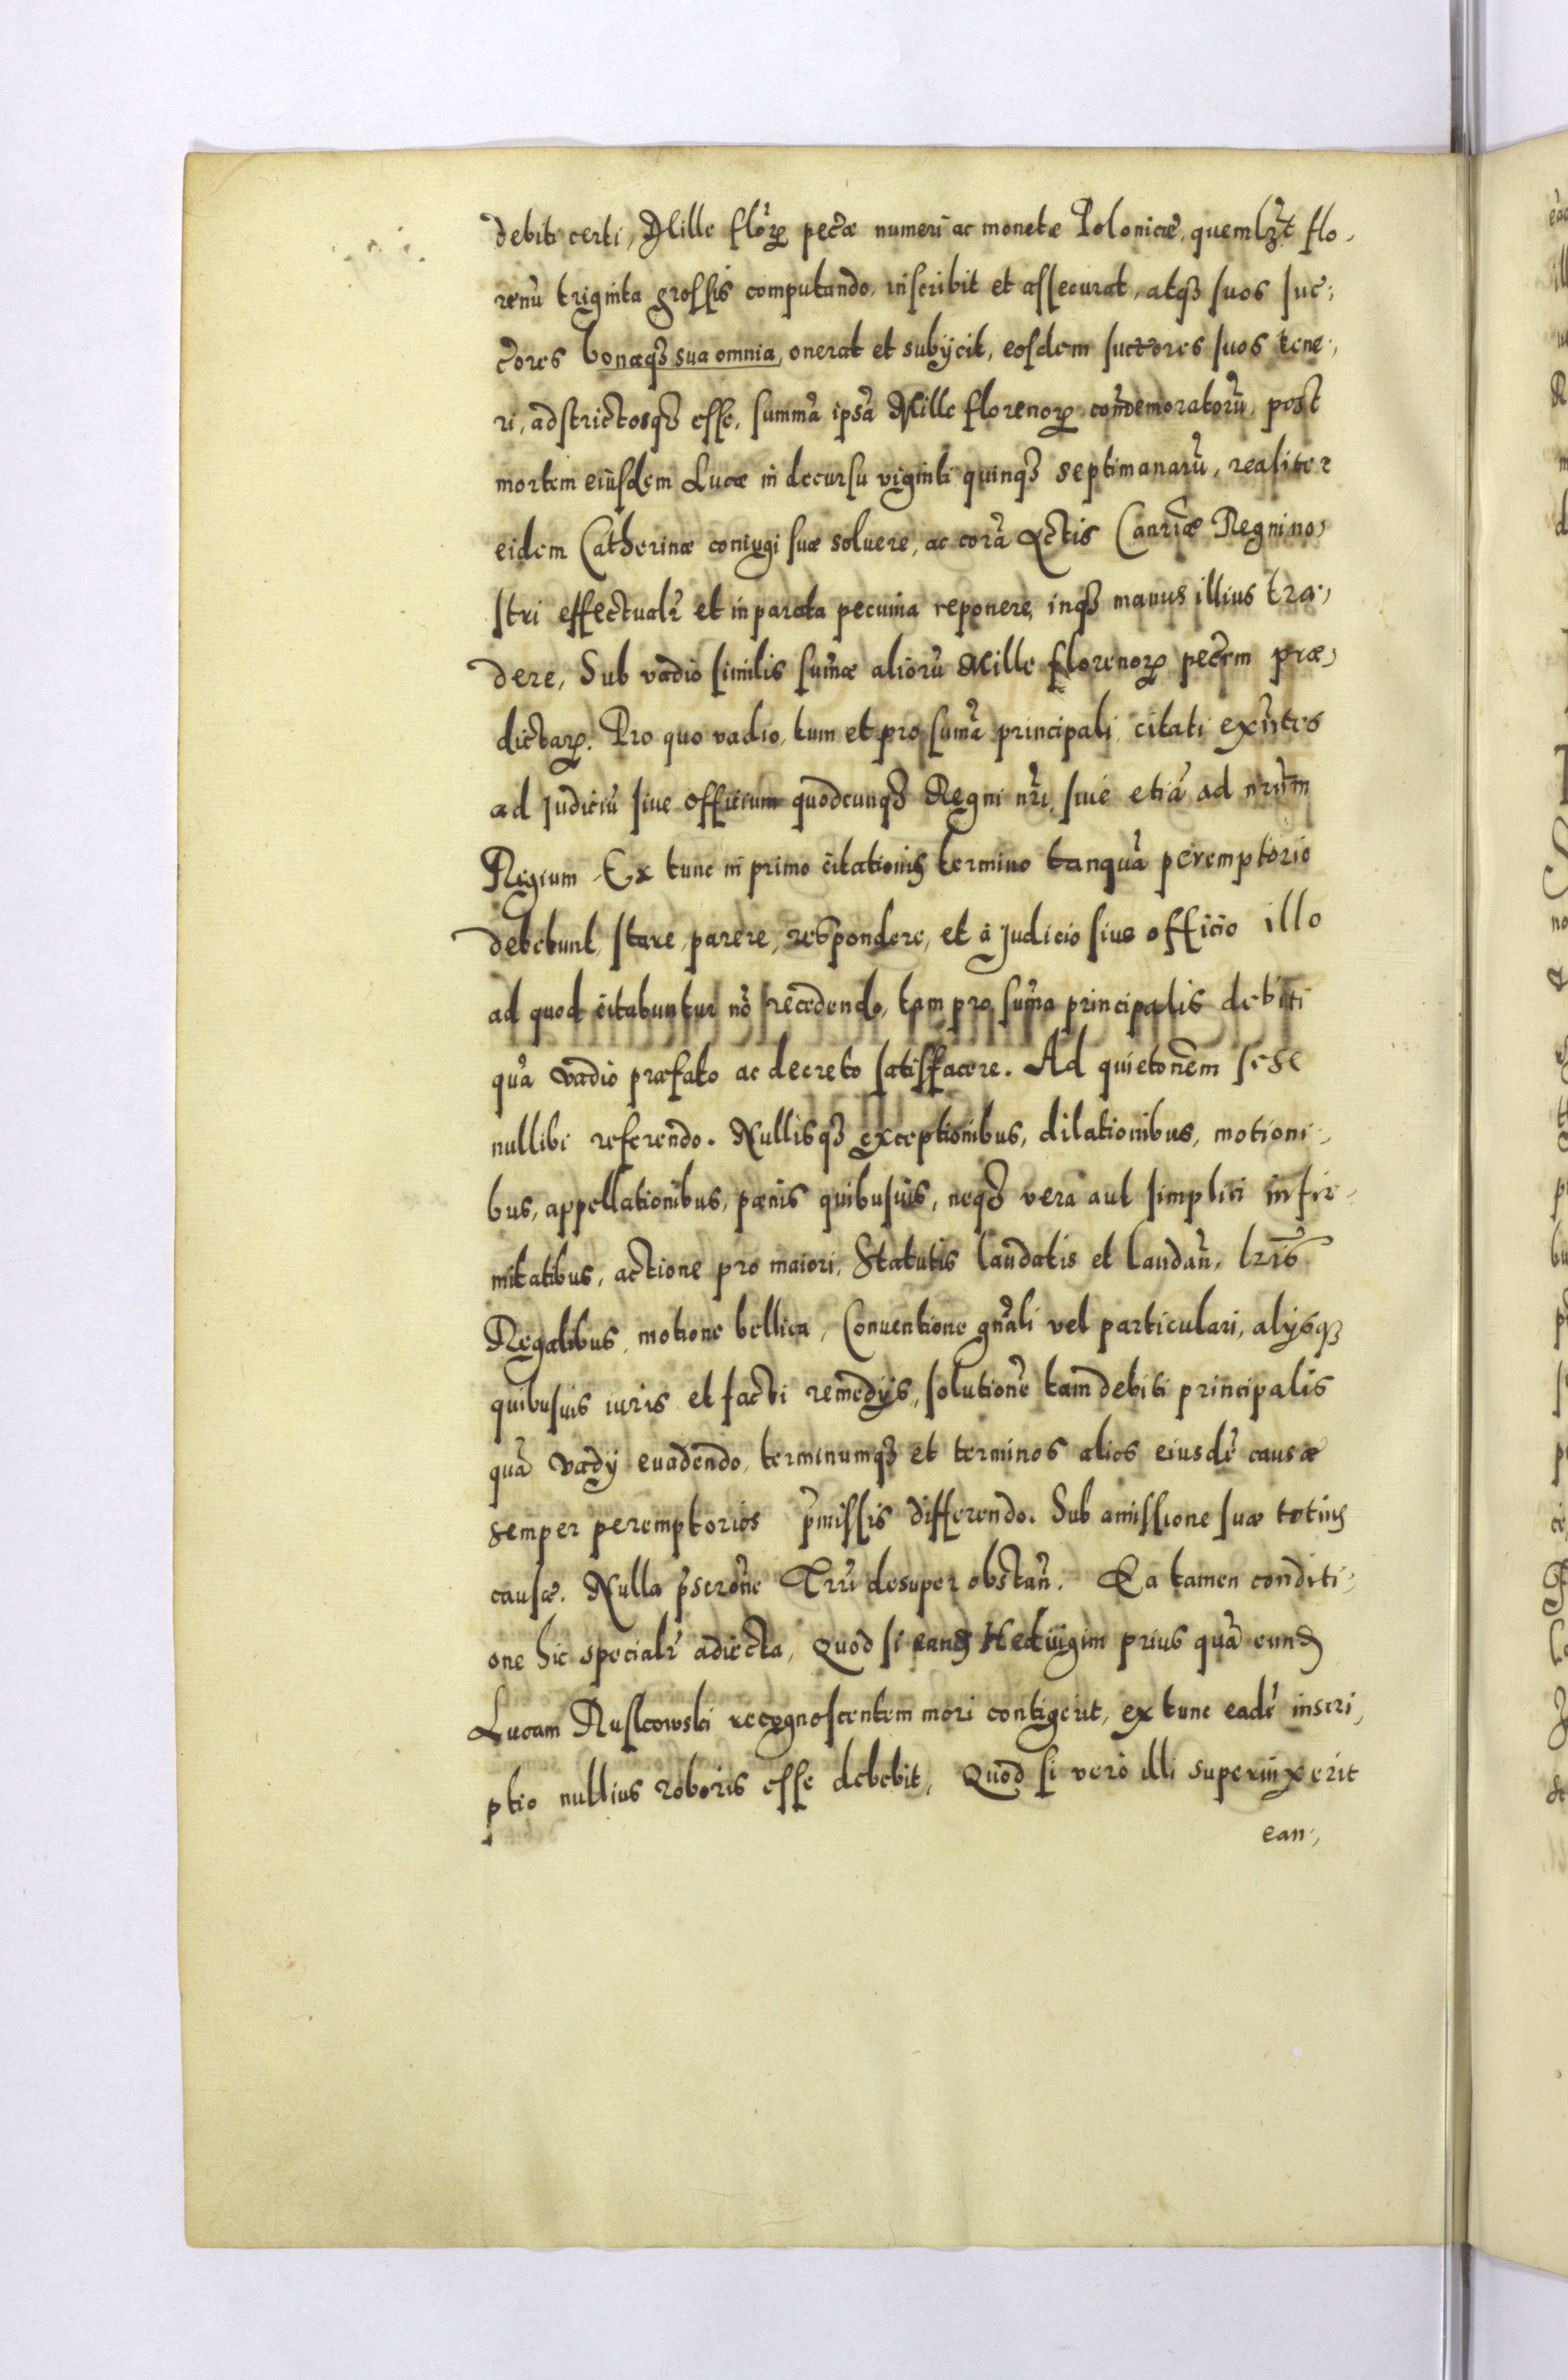 debiti certi, Mille floꝝ pecæ numeri ac monetæ Polonicæ, quemlꝫt flo,
renū triginta grossis computando, inscribit et assecurat, atqꝫ suos suc,
cores bonaqꝫ sua omnia, onerat et subÿcit, eosdem suctores suos tene,
ri, adstrictosqꝫ esse, summā ipsā Mille florenoꝝ com̄emoratorū, post
mortem eiusdem Lucæ in decursu viginti quinqꝫ septimanarū, realiter
eidem Catherinæ coniugi suæ soluere, ac corā Actis Canriæ Regni no,
stri effectualr̄ et in parata pecunia reponere, inqꝫ manus illius tra,
dere, Sub vadio similis sum̄æ aliorū Mille florenoꝝ pecrm præ,
dictaꝝ. Pro quo vadio, tum et pro sum̄a principali, citati exn̄tes
ad Judiciū siue officium quodcunqꝫ Regni nr̄i, siue etiā ad nr̄um
Regium. Ex tunc in primo citationis termino tanquā peremptorio
debebunt stare, parere, respondere, et à Judicio siue officio illo
ad quod citabuntur nō recedendo, tam pro sum̄a principalis debiti
quā vadio præfato ac decreto satisfacere. Ad quietonem sese
nullibi referendo. Nullisqꝫ exceptionibus, dilationibus, motioni,
bus, appellationibus, pænis quibusuis, neqꝫ vera aut simplici infir,
mitatibus, actione pro maiori, Statutis laudatis et laudan̄, lr̄is
Regalibus, motione bellica, Conuentione gn̄ali vel particulari, alÿsqꝫ
quibusuis iuris et facti remedÿs, solutionē tam debiti principalis
quā vadÿ euadendo, terminumqꝫ et terminos alios eiusdē causæ
semper peremptorios p̄missis differendo. Sub amissione suæ totius
causæ. Nulla p̄scrōne Trr̄i desuper obstan̄. Ea tamen conditi,
one hic specialr̄ adiecta, Quod si eand Heduigim prius quā eund
Lucam Ruskowski recognoscentem mori contigerit, ex tunc eadē inscri,
ptio nullius roboris esse debebit, Quod si vero illi superuixerit
ean,